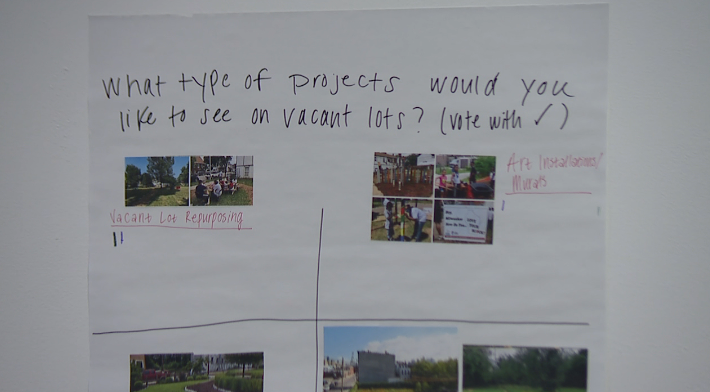 What type of projects would you
like to see on vacant lots? (vote with ✓)
Art Installations/
Murals
Vacant Lot Repurposing